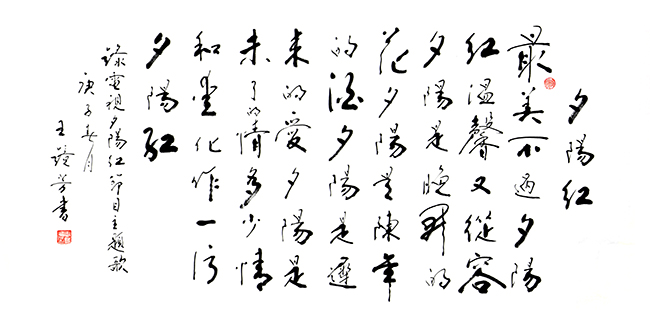 夕陽紅
最美不過夕陽
紅溫馨又從容
夕陽是晚開的
花夕陽是陳年
的酒夕陽是遲
來的愛夕陽是
未了的情多少情
和愛化作一片
夕陽紅
錄電視夕陽紅節目主題歌
庚子春月
王芳書